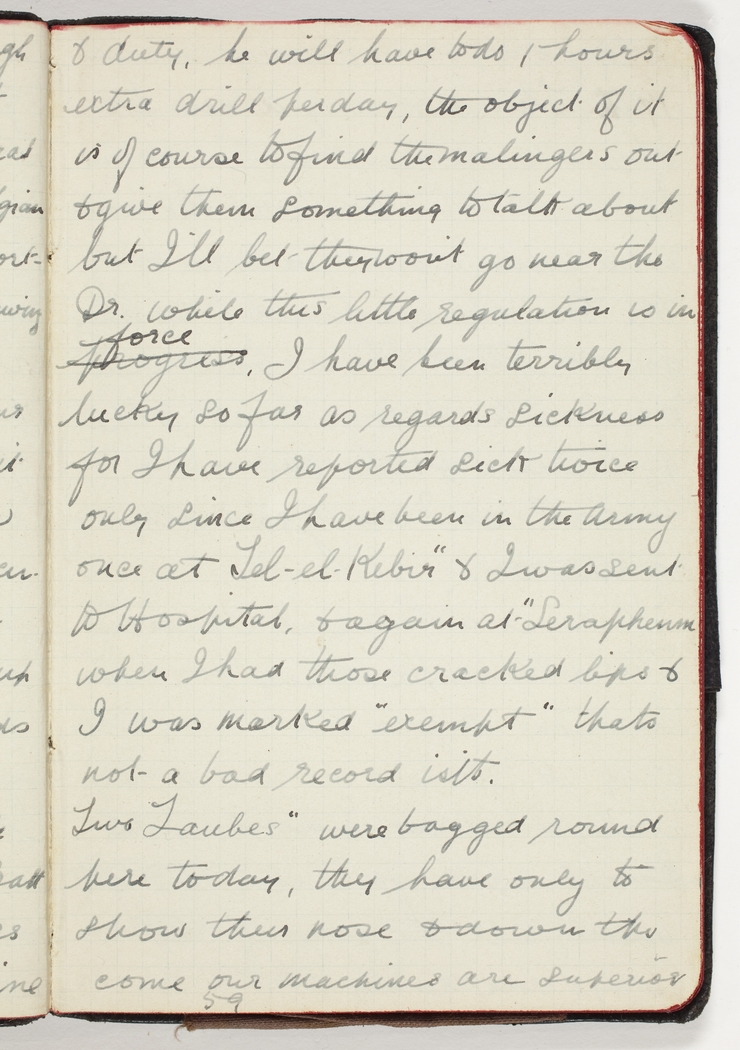 & duty, he will have to do 1 hours
extra drill per day, the object of it
is of course to find the malingers out
& give them something to talk about
but I'll bet they wont go near the
Dr. while this little regulation is in
force
progress, I have been terribly
lucky so far as regards sickness
for I have reported sick twice
only since I have been in the Army
once at Tel-el-Kebir" & I was sent
to Hospital, & again at "Seraphenm
when I had those cracked lips &
I was marked "exempt" thats
not a bad record isits.
Two Taubes" were bagged round
here today, they have only to
show their nose & down the
come our machines are superior
59